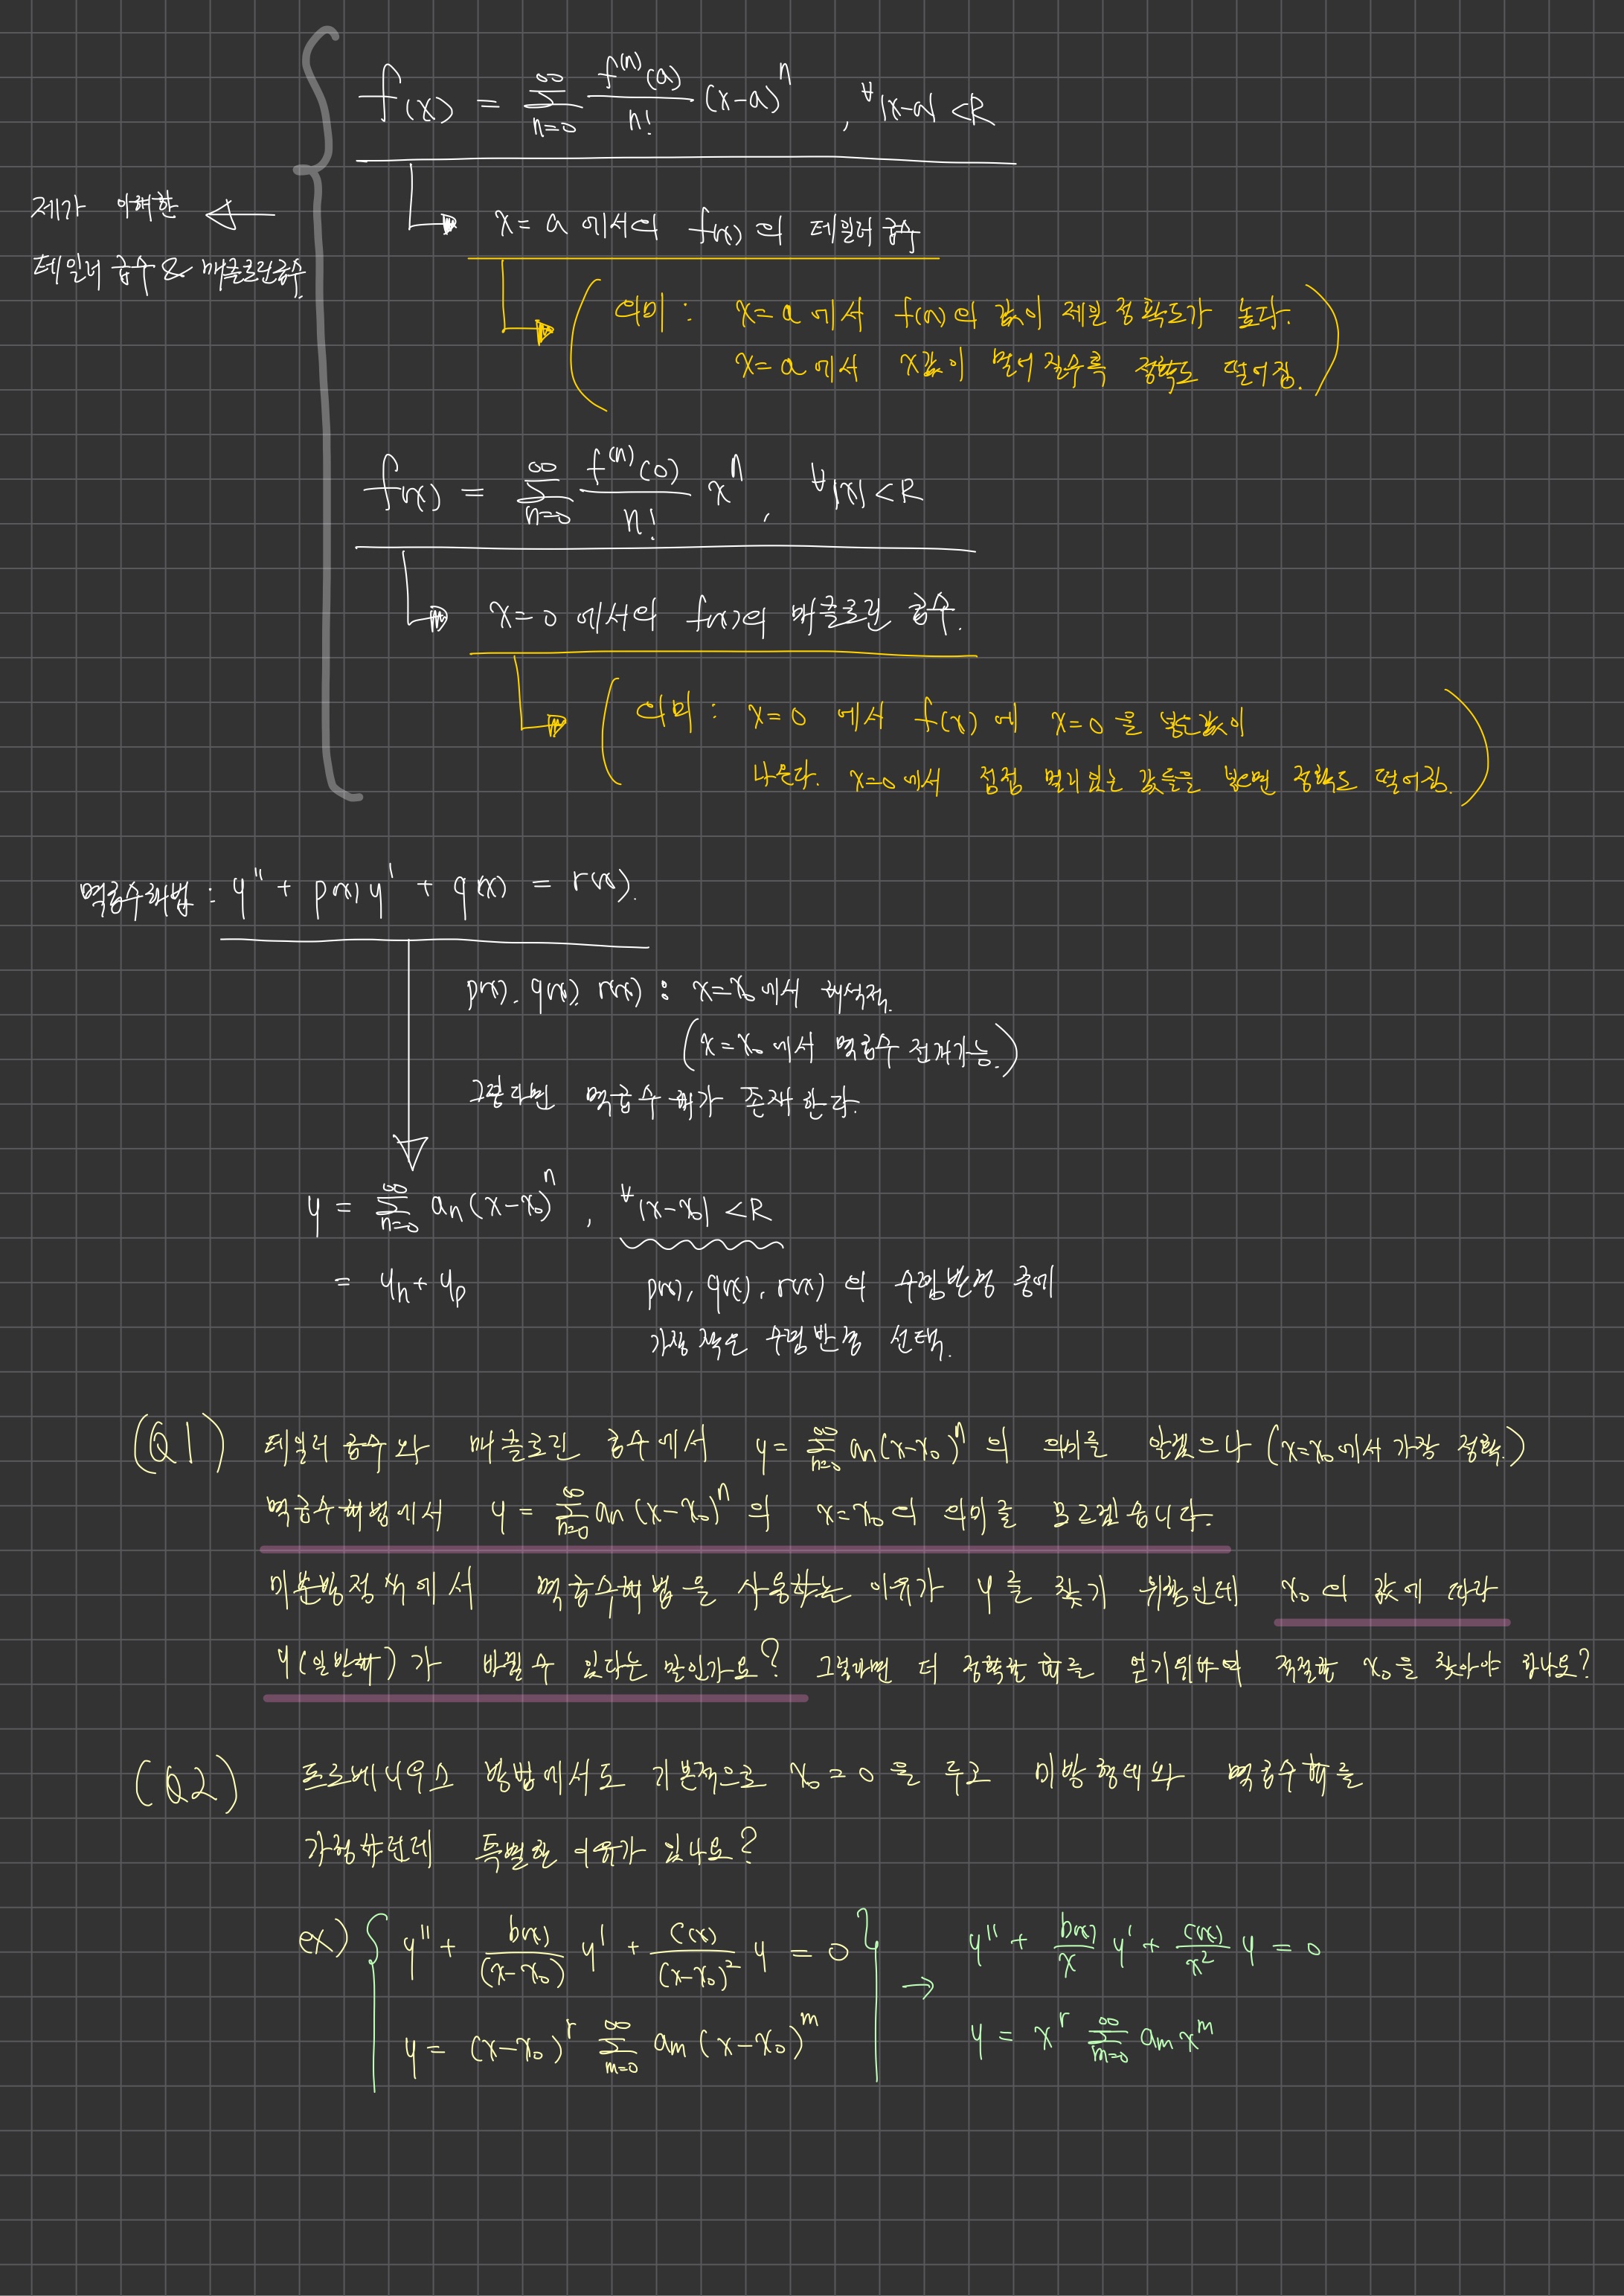 f(x) = ∞∑n=0 f⁽ⁿ⁾(a)/n! (x-a)ⁿ , ∀|x-a| <R
제가 이해한
테일러 급수 & 매클로린급수
x=a 에서의 f(x)의 테일러 급수
의미 : x=a 에서 f(a)의 값이 제일 정확도가 높다.
x=a 에서 x값이 멀어 질수록 정확도 떨어짐.
f(x) = ∞∑n=0 f⁽ⁿ⁾(0)/n! xⁿ , ∀|x| <R
x=0 에서의 f(x)의 매클로린 급수.
의미 : x=0 에서 f(x)에 x=0을 넣은값이
나온다. x=0에서 점점 멀리있는 값들을 넣으면 정확도 떨어짐.
멱급수해법 : y'' + p(x)y' + q(x) = r(x).
p(x), q(x), r(x) : x=x₀에서 해석적.
(x=x₀에서 멱급수 전개가능.)
그렇다면 멱급수 해가 존재한다.
y = ∞∑n=0 an(x-x₀)ⁿ , ∀|x-x₀| <R
= yh + yp
p(x), q(x), r(x)의 수렴반경 중에
가장 작은 수렴반경 선택.
(Q1) 테일러 급수와 매클로린 급수에서 y = ∞∑n=0 an(x-x₀)ⁿ의 의미를 알겠으나 (x=x₀에서 가장 정확.)
멱급수해법에서 y = ∞∑n=0 an(x-x₀)ⁿ의 x=x₀의 의미를 모르겠습니다.
미분방정식에서 멱급수해법을 사용하는 이유가 y를 찾기 위함인데 x₀의 값에 따라
y(일반해)가 바뀔수 있다는 말인가요? 그렇다면 더 정확한 해를 얻기위하여 적절한 x₀을 찾아야 하나요?
(Q2) 프로베니우스 방법에서도 기본적으로 x₀=0을 두고 미방형태와 멱급수해를
가정하던데 특별한 이유가 있나요?
ex) y'' + b(x)/(x-x₀) y' + c(x)/(x-x₀)² y = 0 → y'' + b(x)/x y' + c(x)/x² y = 0
y = (x-x₀)ʳ ∞∑m=0 am(x-x₀)ᵐ y = xʳ ∞∑m=0 am xᵐ